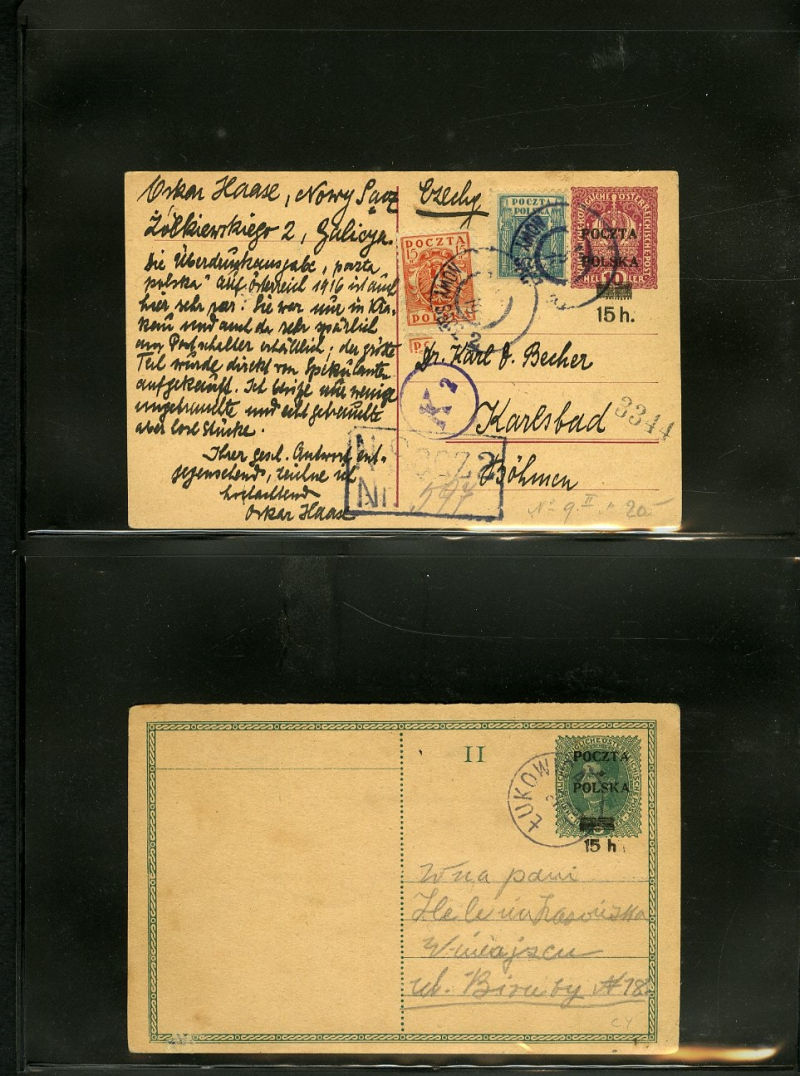 Oskar Haase, Nowy Sącz
Żółkiewskiego 2, Galicya.
Die Überdruckausgabe, poczta
polska" auf Österreich 1916 ist auch
hier sehr rar. Sie war nur in Kra-
kau und auch da sehr spärlich
am Postschalter erhältlich, der größte
Teil wurde direkt von Spekulanten
aufgekauft. Ich besitze nur wenige
ungebrauchte und echt gebrauchte
aber lose Stücke.
Ihrer gesch. Antwort ent-
gegensehend, zeichne ich
hochachtend
Oskar Haase
Czechy
POCZTA
15 15
POLSKA
POCZTA
POLSKA
POCZTA
POLSKA
10
HELLER
15 h.
NOWY SĄCZ
2
Dr. Karl v. Becher
Karlsbad
Böhmen
3344
K 2
Nr. 597
No 9 II
20
II
ŁUKOW
POCZTA
POLSKA
15 h
Wna pani
Helena
W miejscu
ul. № 18